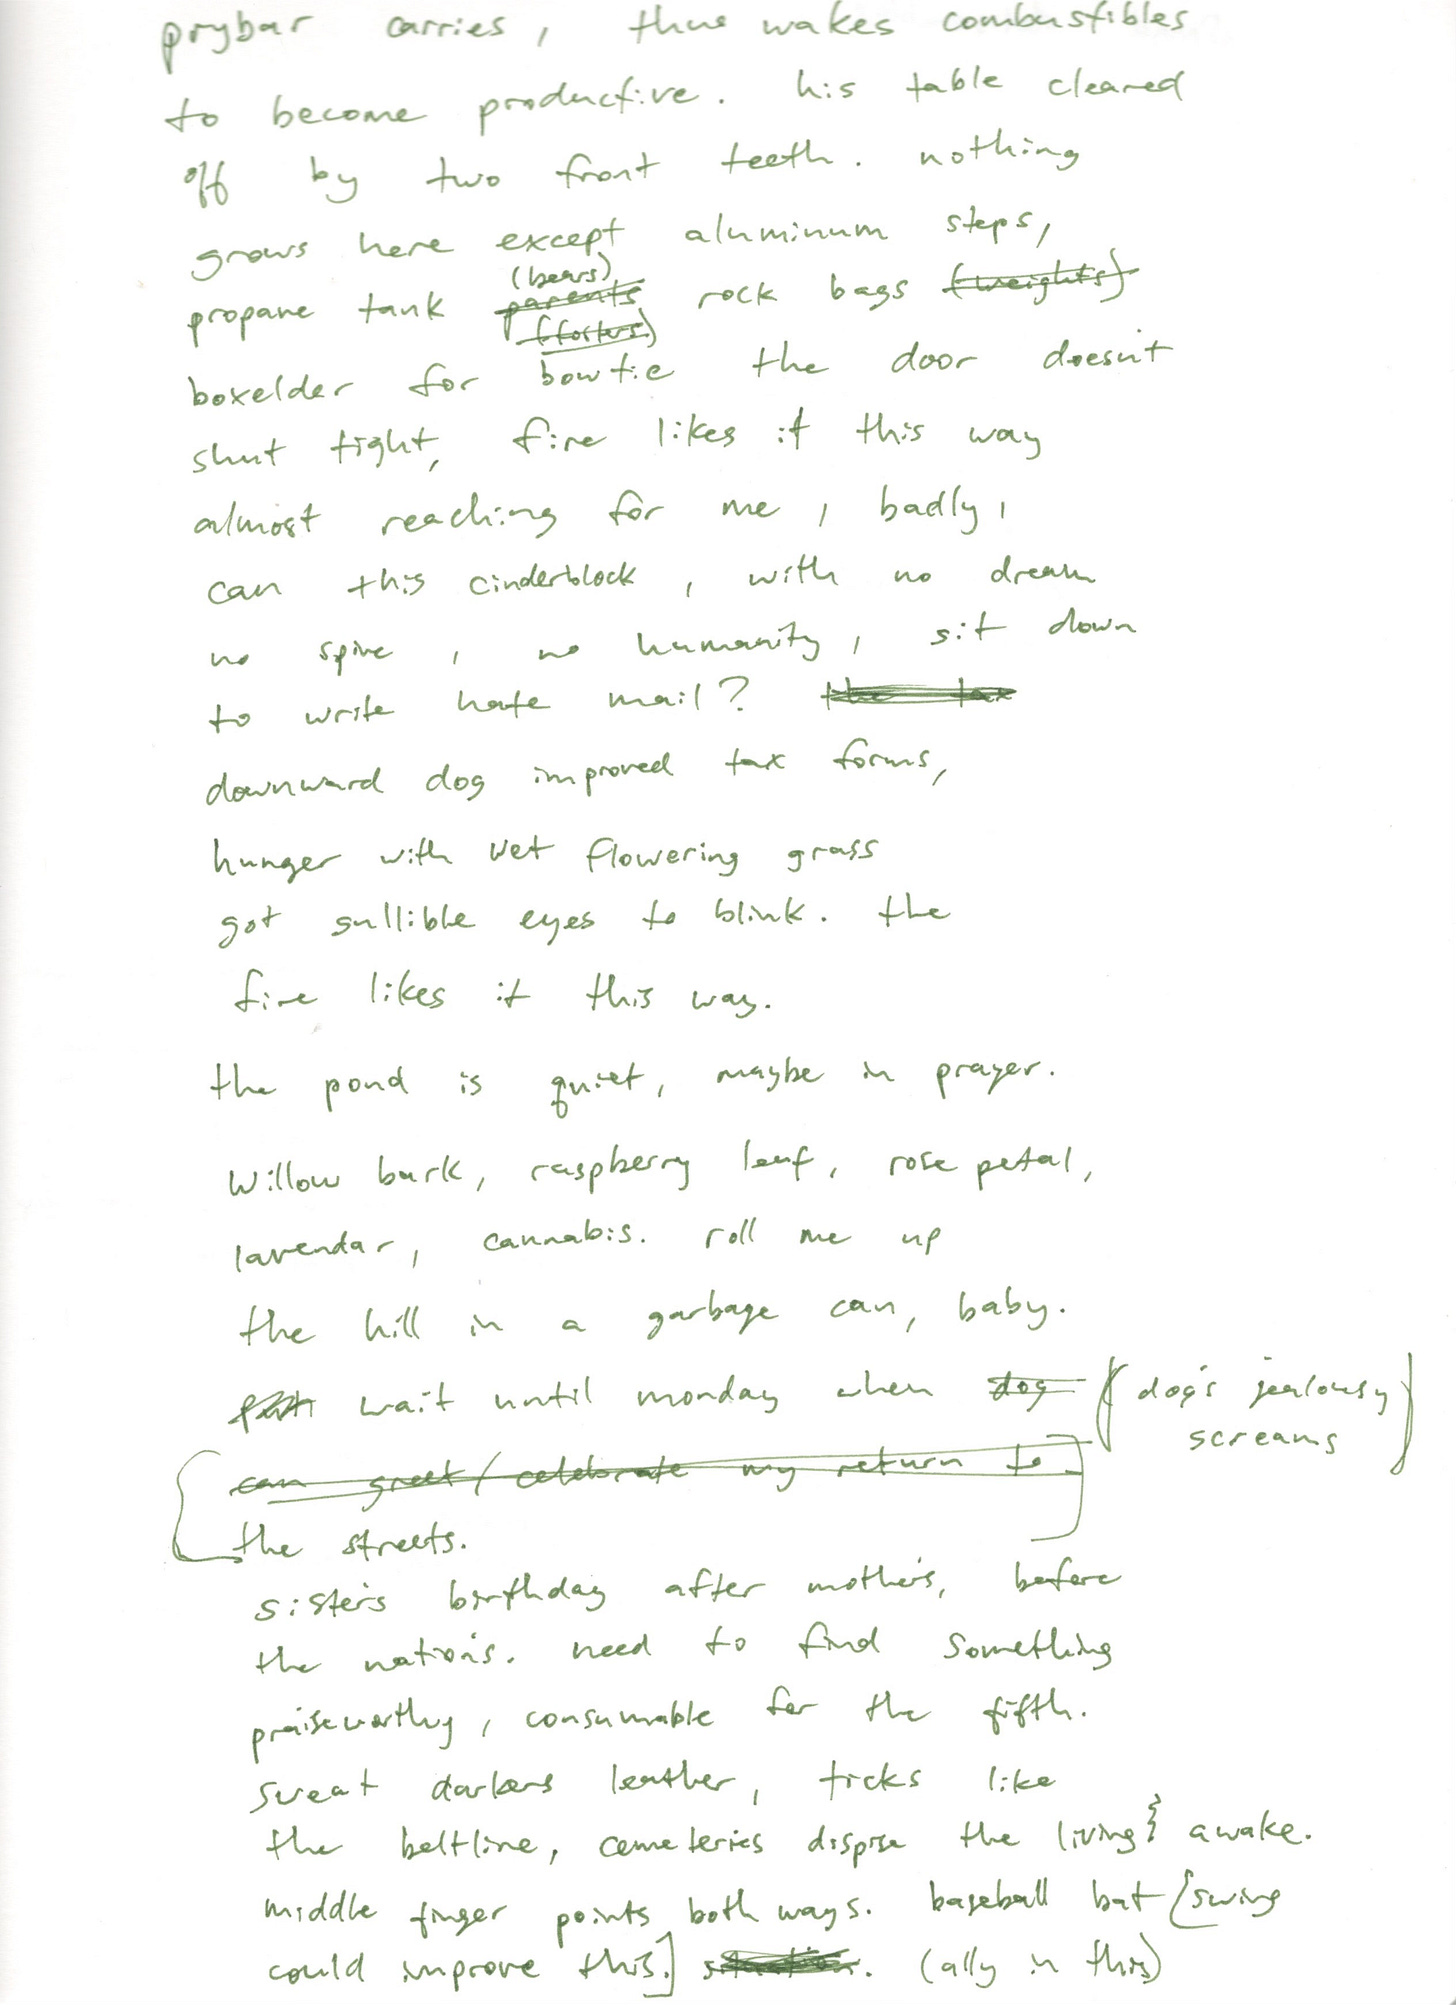 prybar carries, thus wakes combustibles
to become productive. his table cleared
off by two front teeth. nothing
grows here except aluminum steps,
(bears)
propane tank parents rock bags (weights)
(fosters)
boxelder for bowtie the door doesn't
shut tight, fire likes it this way
almost reaching for me, badly,
can this cinderblock, with no dream
no spine, no humanity, sit down
to write hate mail? the tax
downward dog improved tax forms,
hunger with wet flowering grass
got gullible eyes to blink. the
fire likes it this way.
the pond is quiet, maybe in prayer.
Willow bark, raspberry leaf, rose petal,
lavendar, cannabis. roll me up
the hill in a garbage can, baby.
wait until monday when dog (dog's jealousy
screams)
[can greet/celebrate my return to]
the streets.
sister's birthday after mother's, before
the nation's. need to find something
praiseworthy, consumable for the fifth.
sweat darkens leather, ticks like
the beltline, cemeteries dispise the living } awake.
middle finger points both ways. baseball bat [swing
could improve this.] situation. (ally in this)